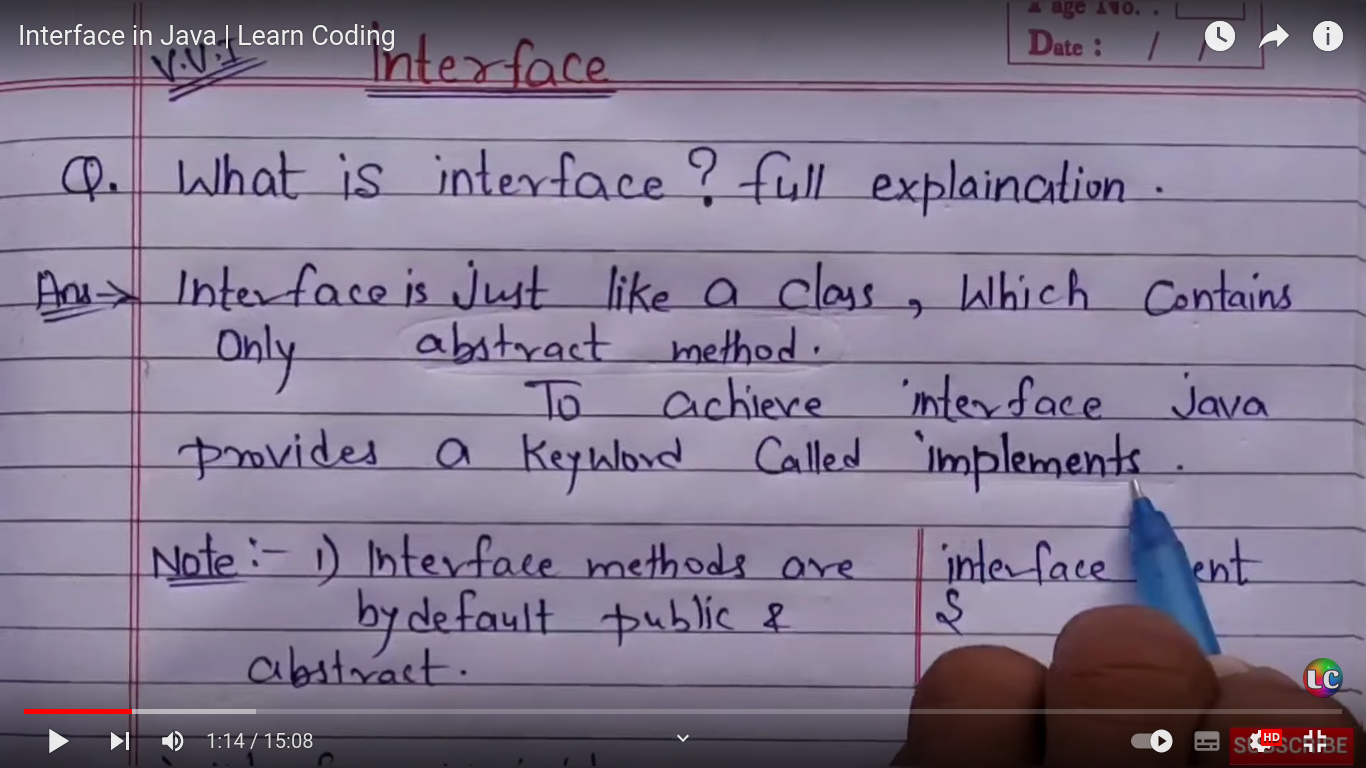 Interface in Java | Learn Coding
Page No. :
Date : / /
V.V.I
Interface
Q. What is interface? full explaination.
Ans→ Interface is just like a class, Which Contains
Only abstract method.
To achieve interface java
provides a keyword Called implements.
Note:- 1) Interface methods are
by default public &
abstract.
interface
LC
1:14 / 15:08
HD
SUBSCRIBE